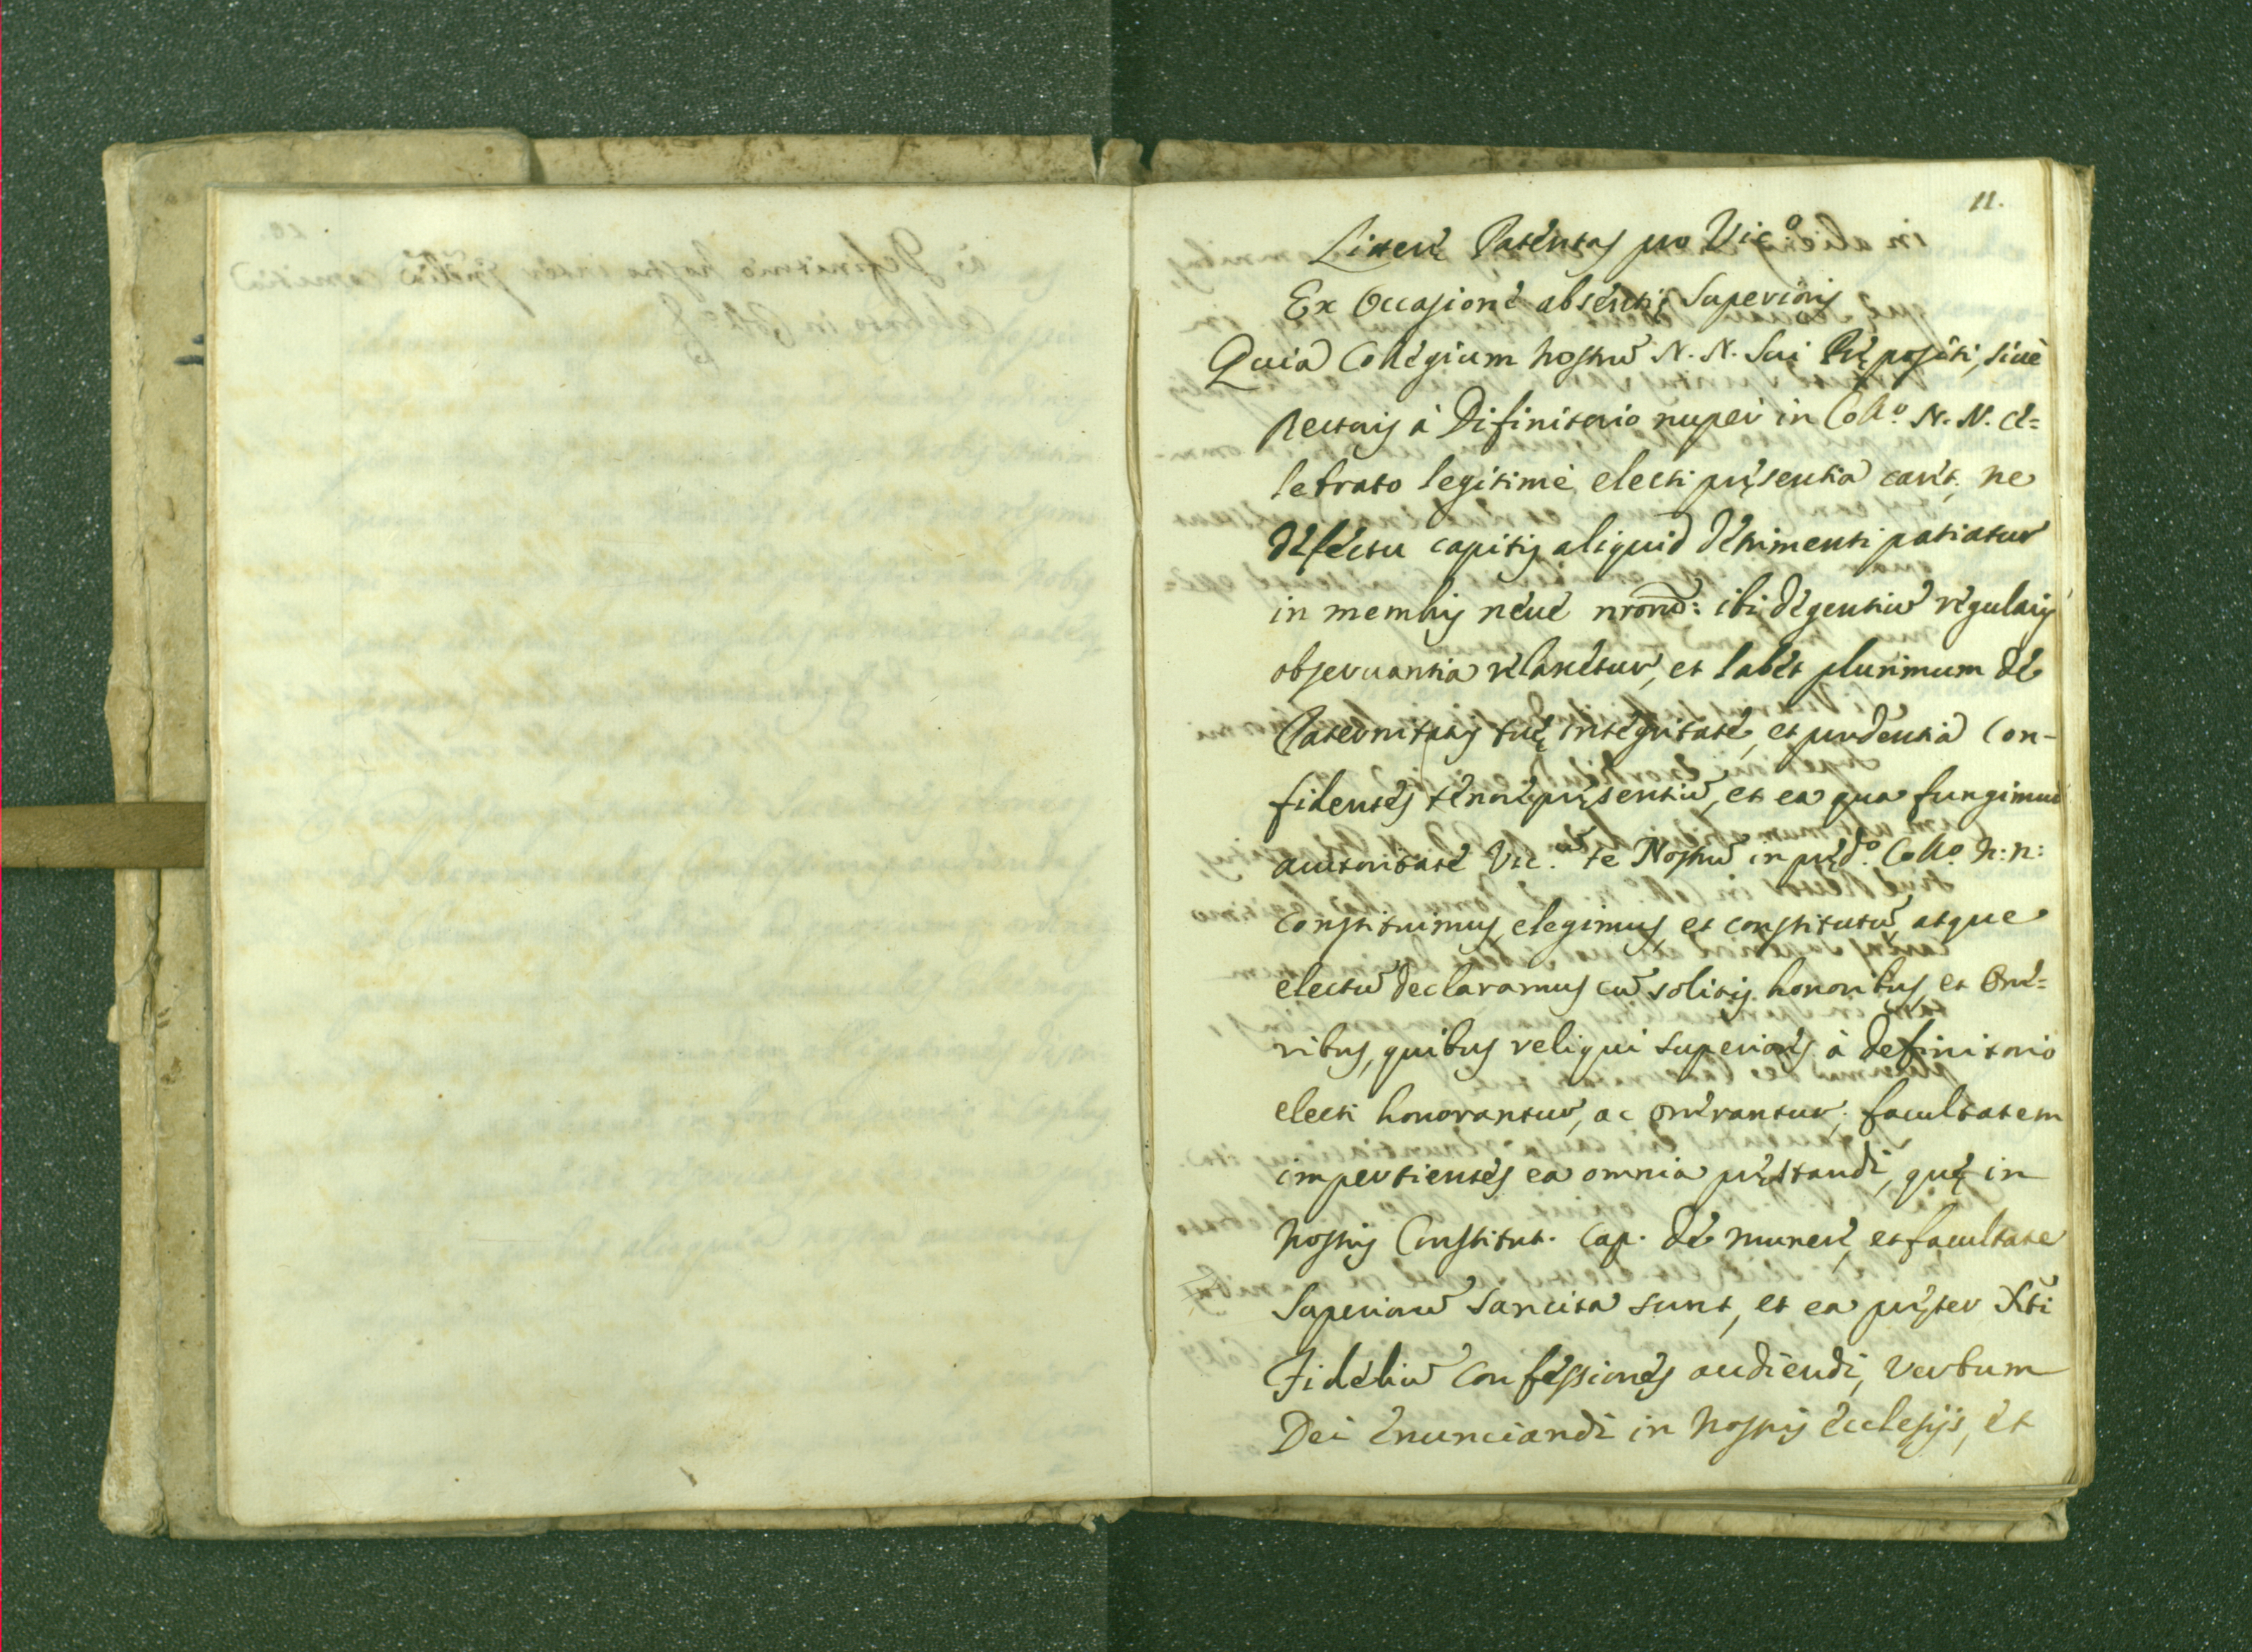 11.
Literę Patentes pro Vic.º
Ex Occasione absentię Superioris
Quia Collegium nostrũ N. N. sui Prępositi, siue
Rectoris à Difinitorio nuper in Coll.º N. N. ce=
lebrato legitimè electi pręsentia caret, ne
defectu capitis aliquid detrimenti patiatur
in membris neue nrorũ: ibi degentiũ regularis
obseruantia relaxetur, et labet plurimum de
Paternitatis tuę integritate, et prudentia con-
fidentes tenore pręsentiũ, et ea qua fungimur
auctoritate Vic.ũ te Nostrũ in pręd.º Coll.º N: N:
constituimus, elegimus, et constitutũ, atque
electũ declaramus cũ solitis honoribus, et One=
ribus, quibus reliqui superiores à definitorio
electi honorantur, ac onerantur, facultatem
impertientes ea omnia pręstandi, quę in
nostris Constitut. cap. de munere, et facultate
Superiorũ sancita sunt, et ea pręter Xti
Fideliũ confessiones audiendi, verbum
Dei enunciandi in nostris ecclesijs, et